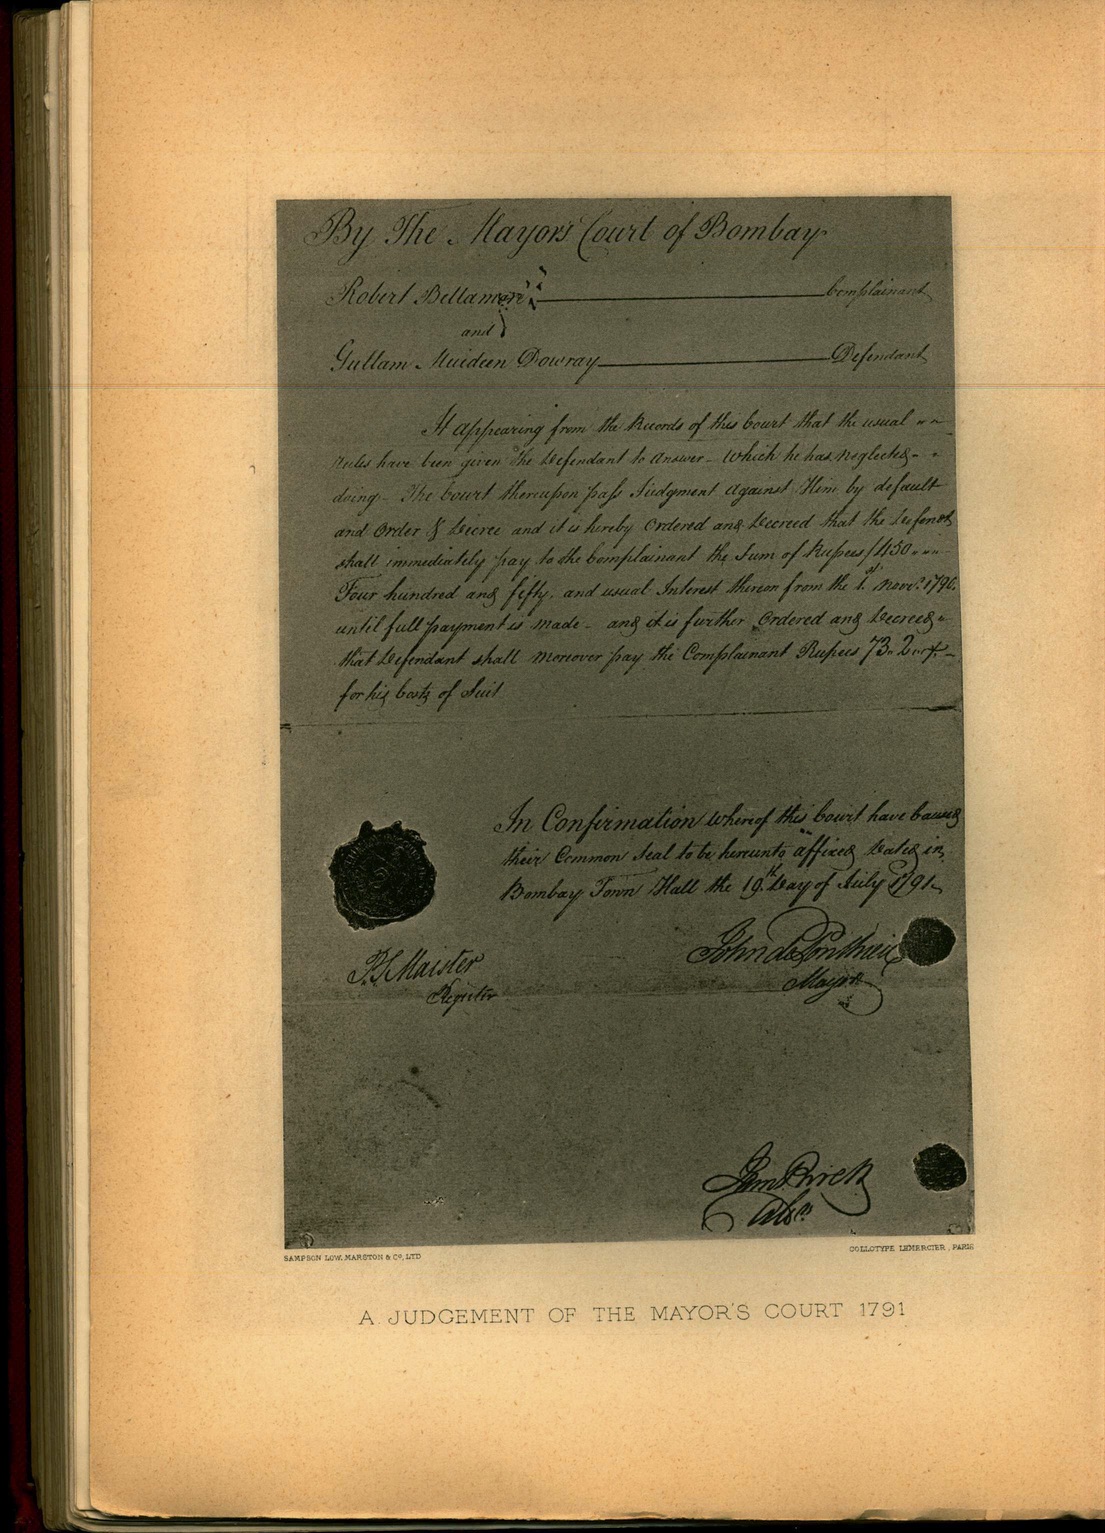 By The Mayors Court of Bombay
Robert Bellamore Complainant
and
Gullam Muideen Dowray Defendant
It appearing from the Records of this Court that the usual
Rules have been given the Defendant to answer - which he has neglected
doing - The Court thereupon pass Judgment against Him by default
and Order & Decree and it is hereby Ordered and Decreed that the Defendt
shall immediately pay to the Complainant the Sum of Rupees/450
Four hundred and fifty. and usual Interest thereon from the 1st Novr. 1790.
until full payment is made - and it is further Ordered and Decreed
that Defendant shall moreover pay the Complainant Rupees 73 " 2 " 4 -
for his Costs of Suit
In Confirmation whereof this Court have Caused
their Common Seal to be hereunto affixed Dated in
Bombay Town Hall the 19th Day of July 1791
Maister
Register
John de Ponthieu
Mayor
SAMPSON LOW, MARSTON & Co, LTD
COLLOTYPE LEMERCIER, PARIS
A JUDGEMENT OF THE MAYOR'S COURT 1791